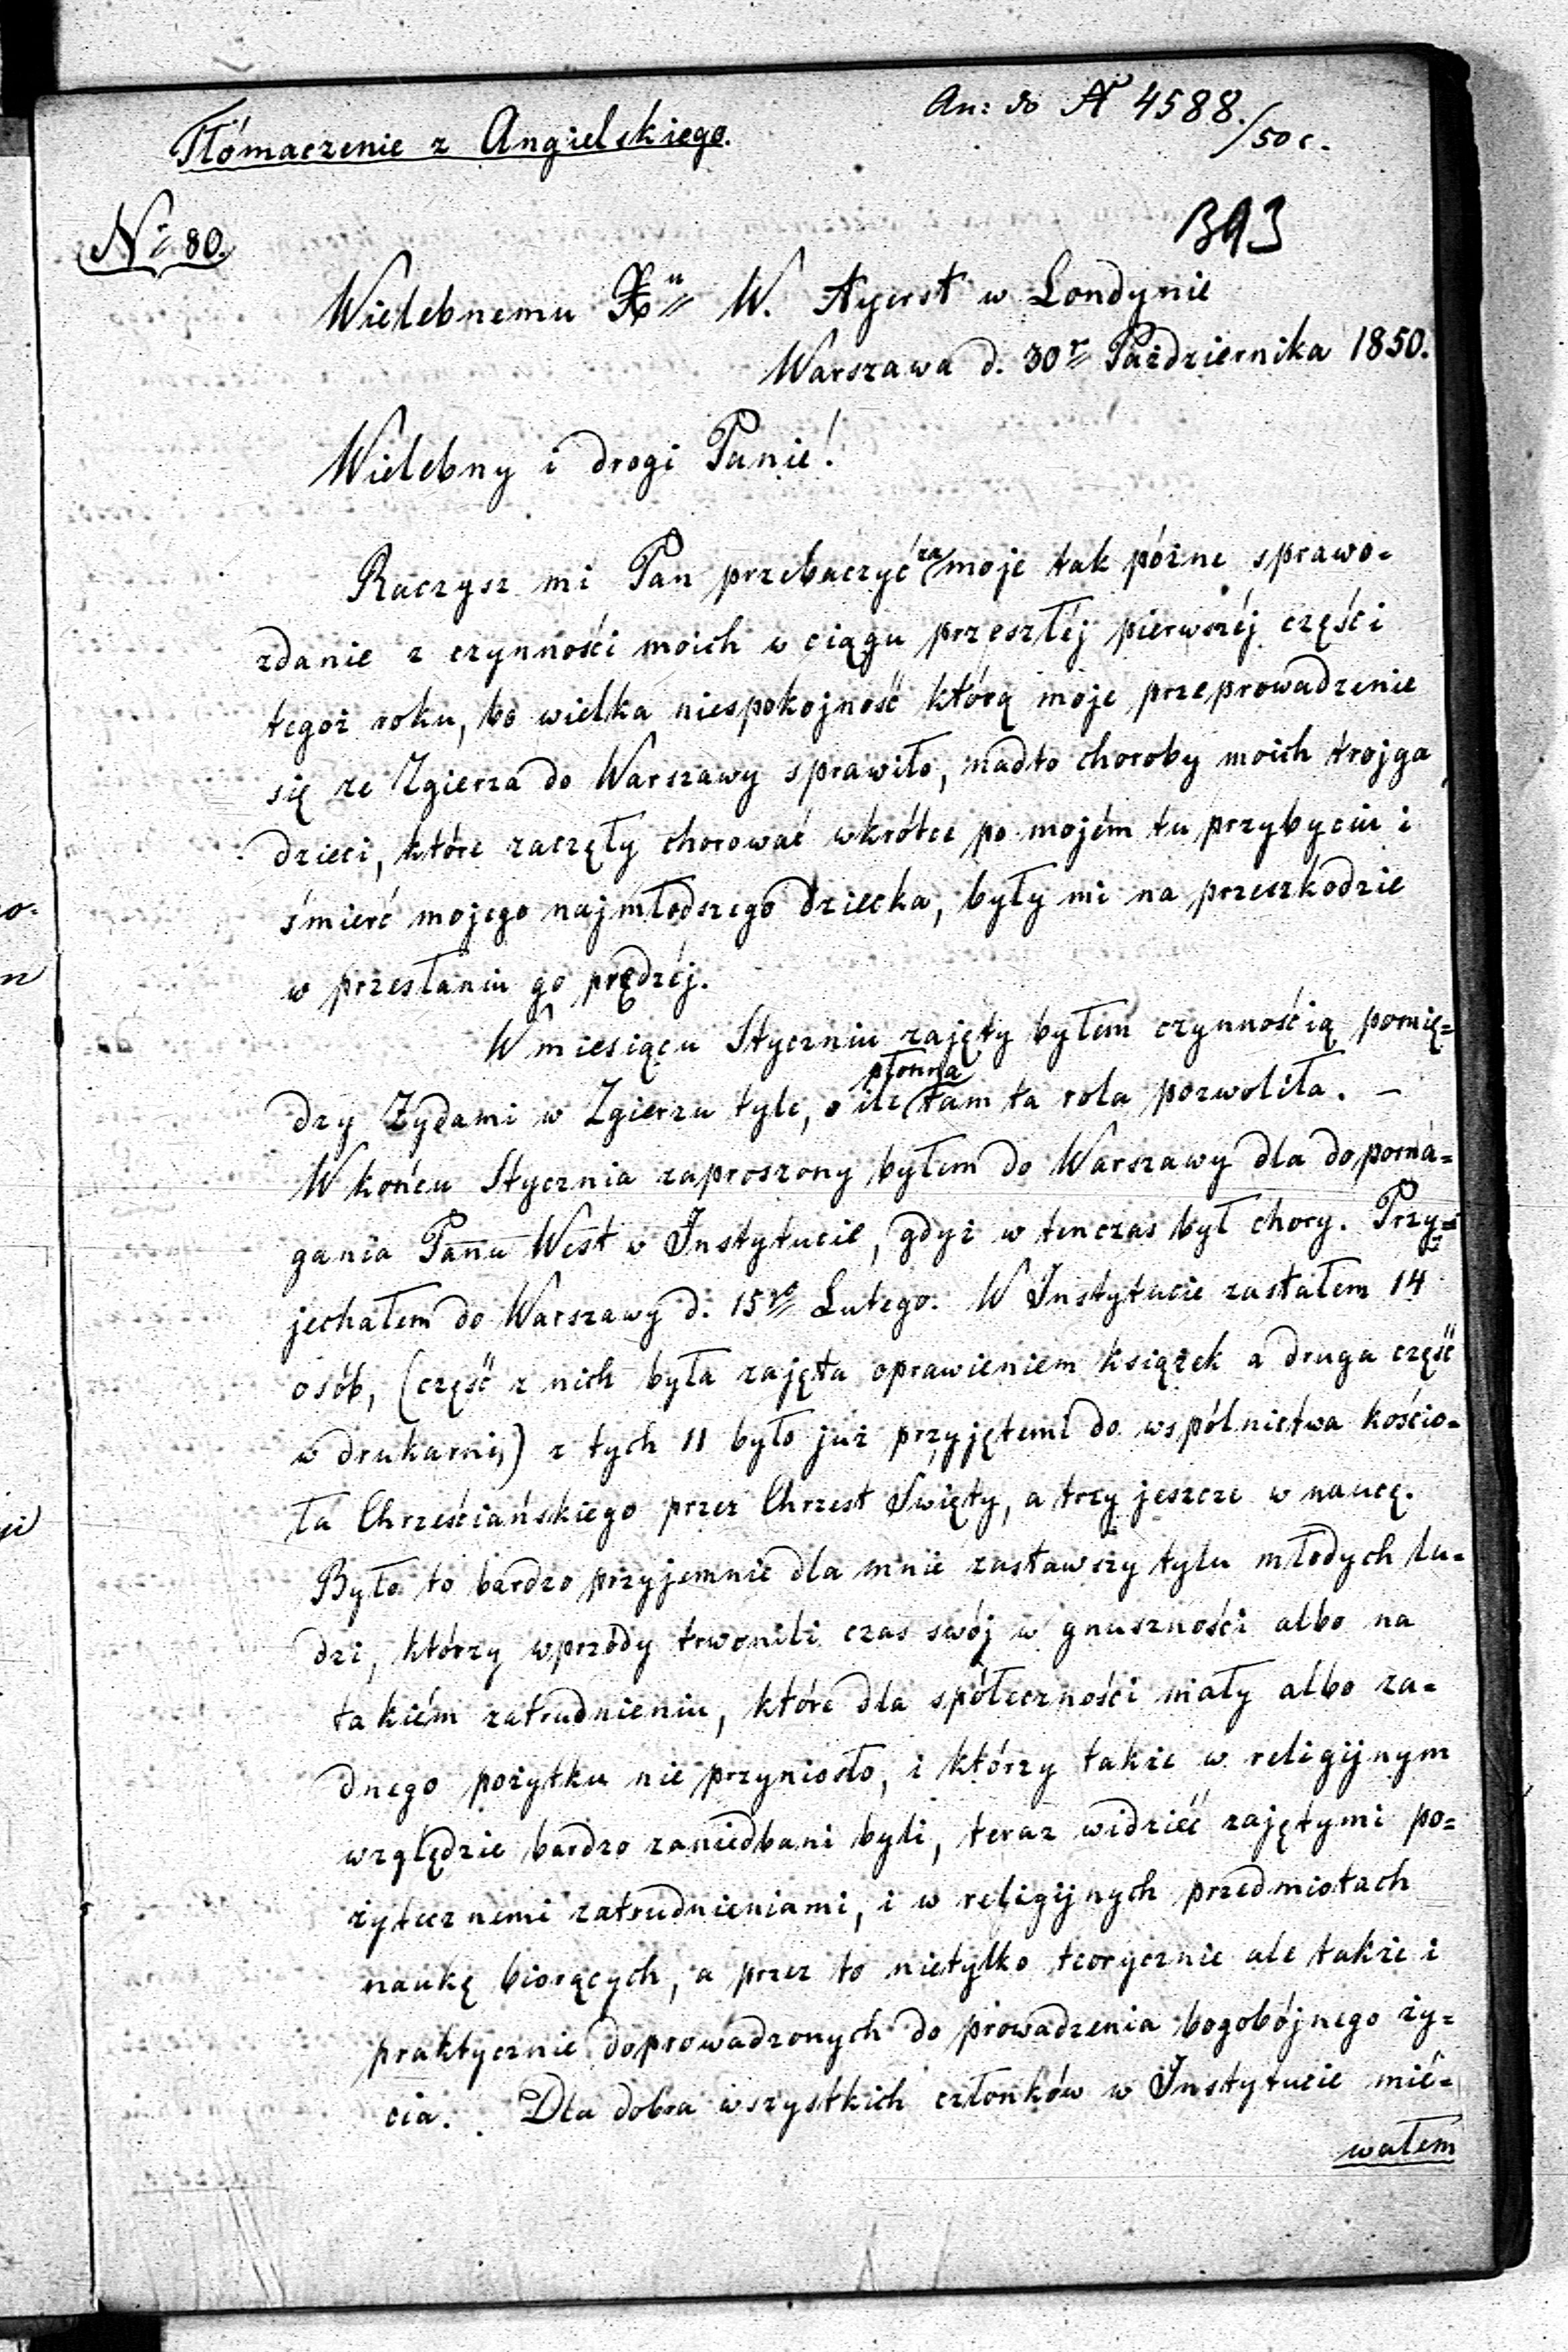 An: do N 4588./50 c.
Tłómaczenie z Angielskiego.
393
No 80.
Wielebnemu Xu W. Ayerst w Londynie
Warszawa d. 30 Października 1850.
Wielebny i drogi Panie!
Raczysz mi Pan przebaczyć za moje tak późne sprawo-
zdanie z czynności moich w ciągu przeszłéj pierwszéj części
tegoż roku, bo wielka niespokojność którą moje przeprowadzenie
się ze Zgierza do Warszawy sprawiło, nadto choroby moich trojga
dzieci, które zaczęły chorować wkrótce po mojém tu przybyciu i
śmierć mojego najmłodszego dziecka, były mi na przeszkodzie
w przesłaniu go prędzéj.
W miesiącu Styczniu zajęty byłem czynnością pomię-
dzy Żydami w Zgierzu tyle, o ile płonna tam ta rola pozwoliła. –
W końcu Stycznia zaproszony byłem do Warszawy dla dopomá-
gania Panu West w Instytucie, gdyż w tenczas był chory. Przy-
jechałem do Warszawy d. 15go Lutego. W Instytucie zastałem 14
osób, (część z nich była zajęta oprawieniem książek a druga część
w drukarni,) z tych 11 było już przyjętemi do wspólnictwa kościo-
ła Chrześciańskiego przez Chrzest Święty, a trzy jeszcze w naucę.
Było to bardzo przyjemnie dla mnie zastawszy tylu młodych lu-
dzi, którzy wprzódy trwonili czas swój w gnuszności albo na
takiém zatrudnieniu, które dla spółeczności mały albo ża-
dnego pożytku nie przyniosło, i którzy także w religijnym
względzie bardzo zaniedbani byli, teraz widzieć zajętymi po-
żytecznemi zatrudnieniami, i w religijnych przedmiotach
naukę biorących, a przez to nietylko teorycznie ale także i
praktycznie doprowadzonych do prowadzenia bogobójnego ży-
cia. Dla dobra wszystkich członków w Instytucie mié-
wałem